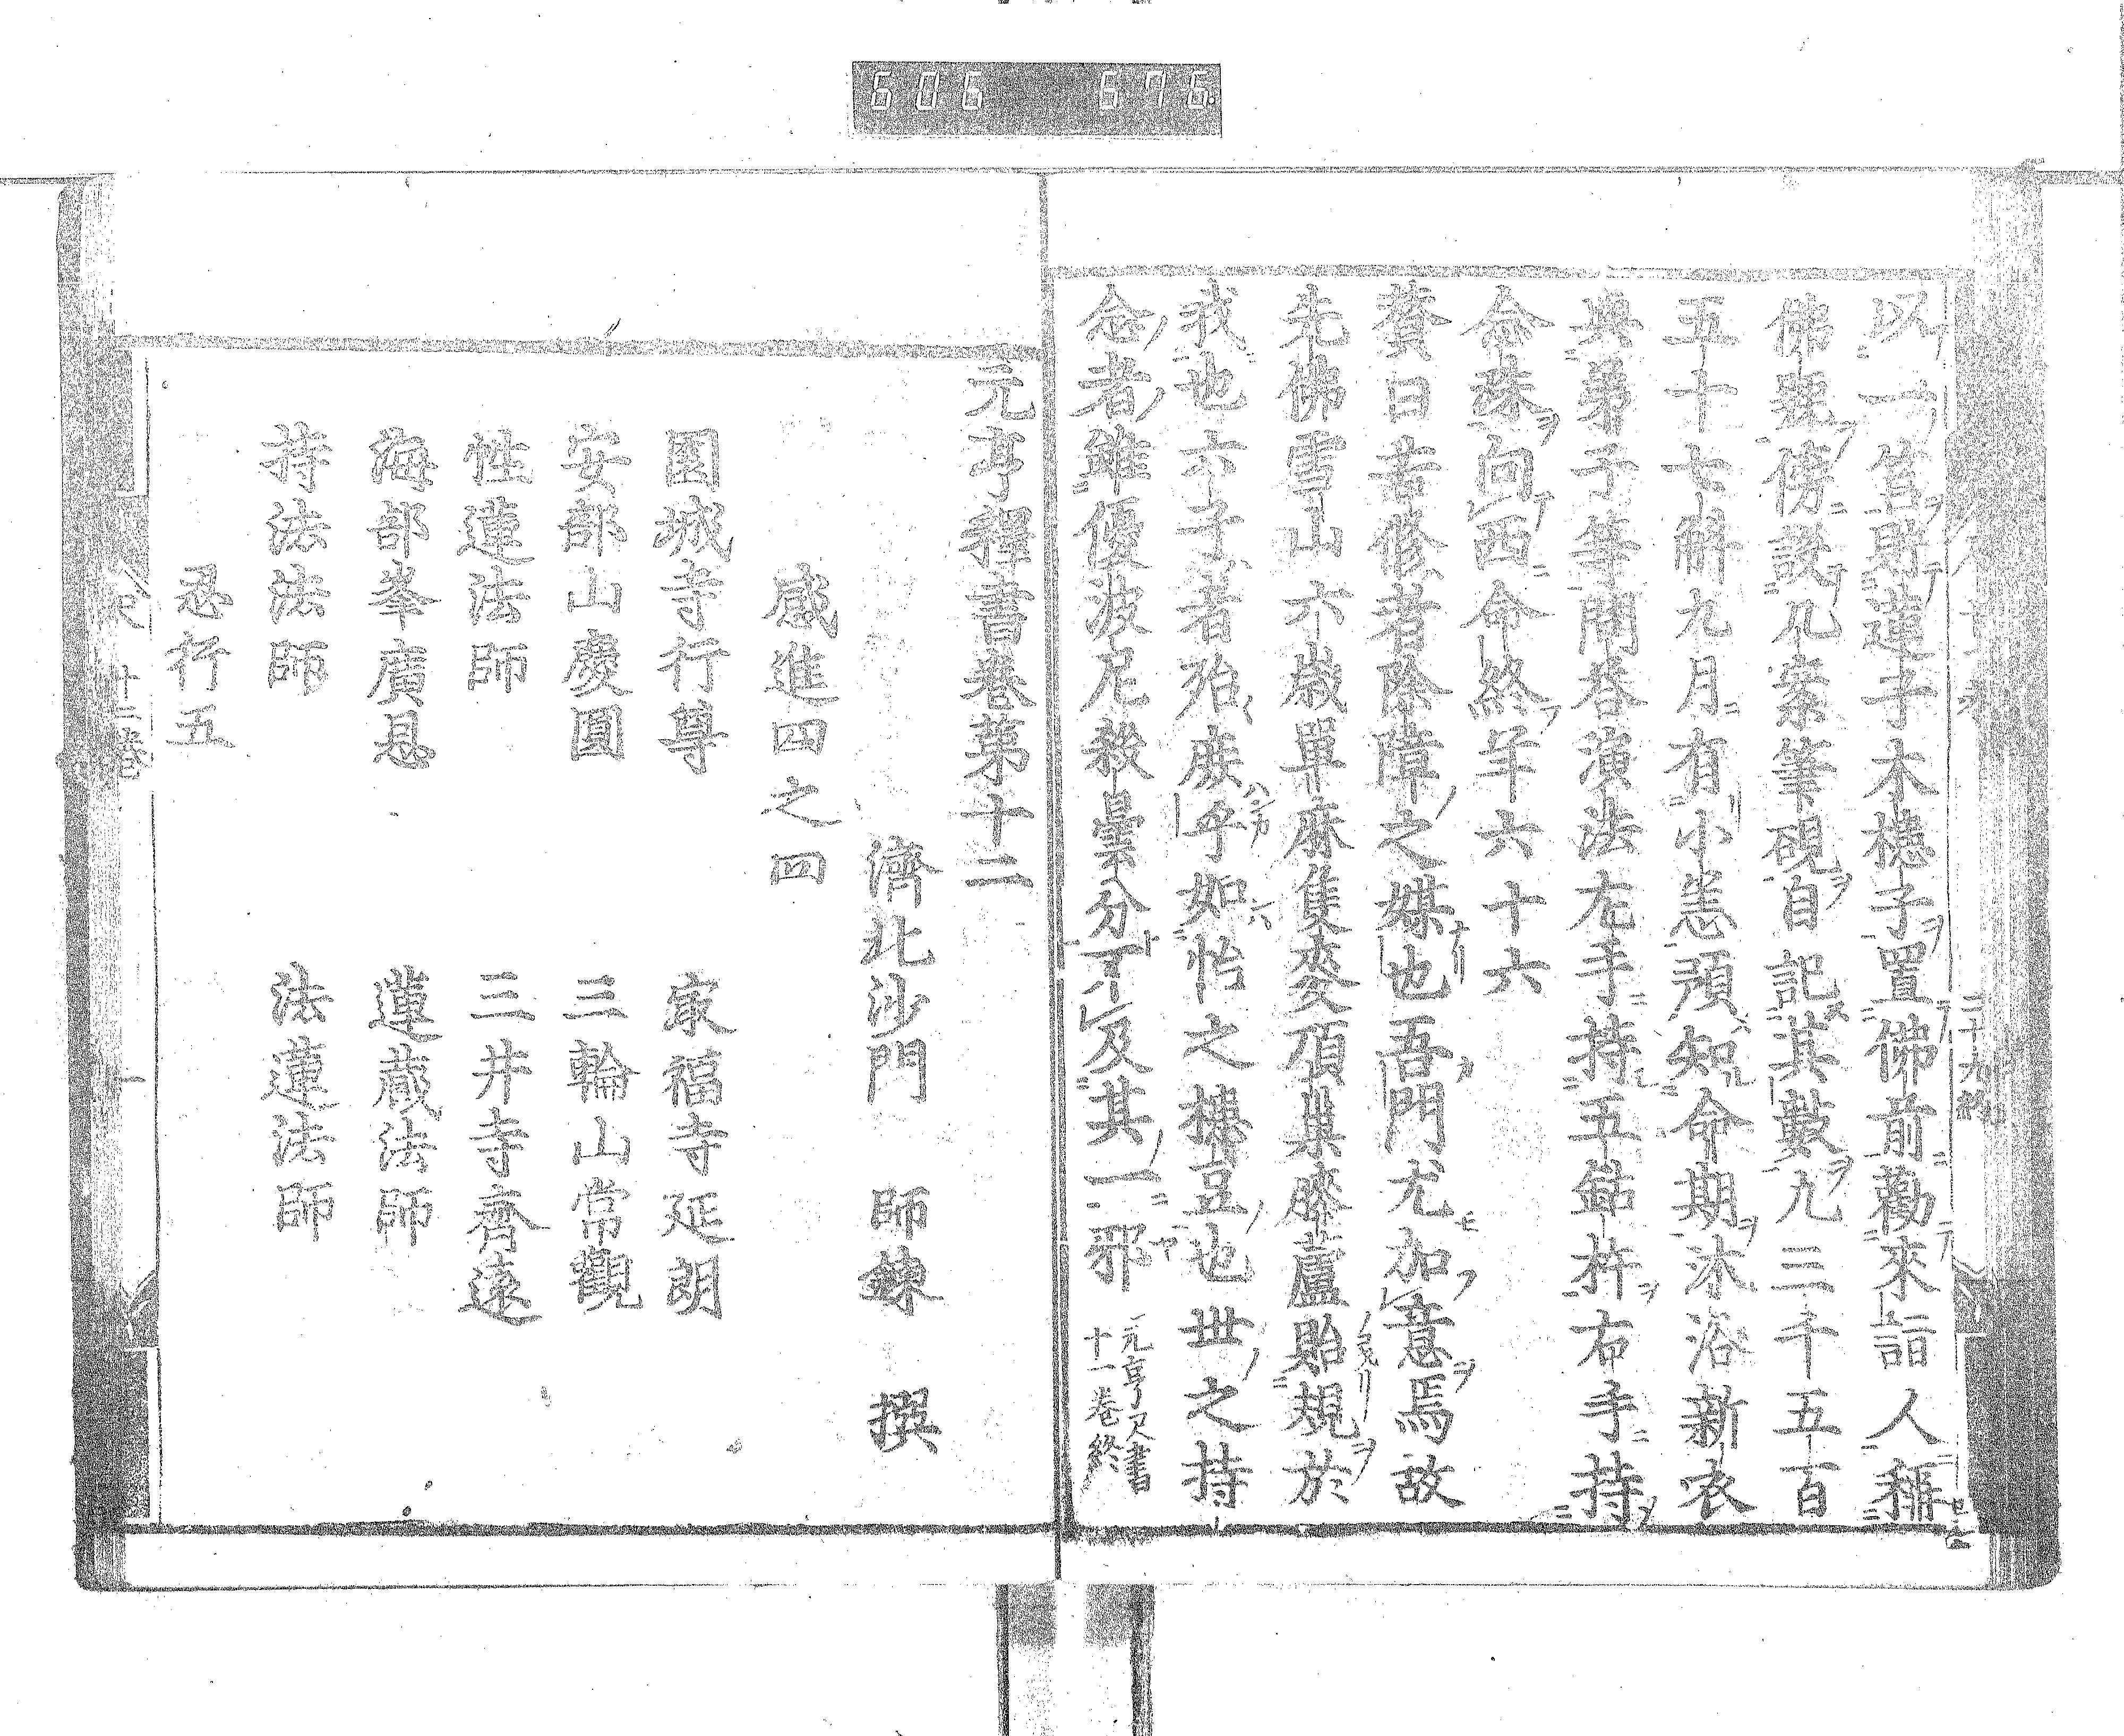 606 676
以一筥貯蓮子木槵子置佛前勸來詣人稱
佛號傍設几案筆硯自記其數九三千五百
五十七斛九月有小恙預知命期沐浴新衣
與弟子等問答演法左手持五鈷杵右手持
念珠向西命終年六十六
贊曰苦修者除障之媒也吾門尤加意焉故
先佛雪山六歲單麻隻麥頂巢膝蘆貽規於
我也六子者殆庶乎如怡之槵豆也世之持
念者雖優波尼殺曇分不及其一邪
元亨尺書
十一卷終
元亨釋書卷第十二
濟北沙門 師鍊 撰
感進四之四
園城寺行尊 㝡福寺延朗
安部山慶圓 三輪山常觀
性蓮法師 三井寺齊遠
海部峯廣恩 蓮藏法師
持法法師 法蓮法師
忍行五
十二卷
一